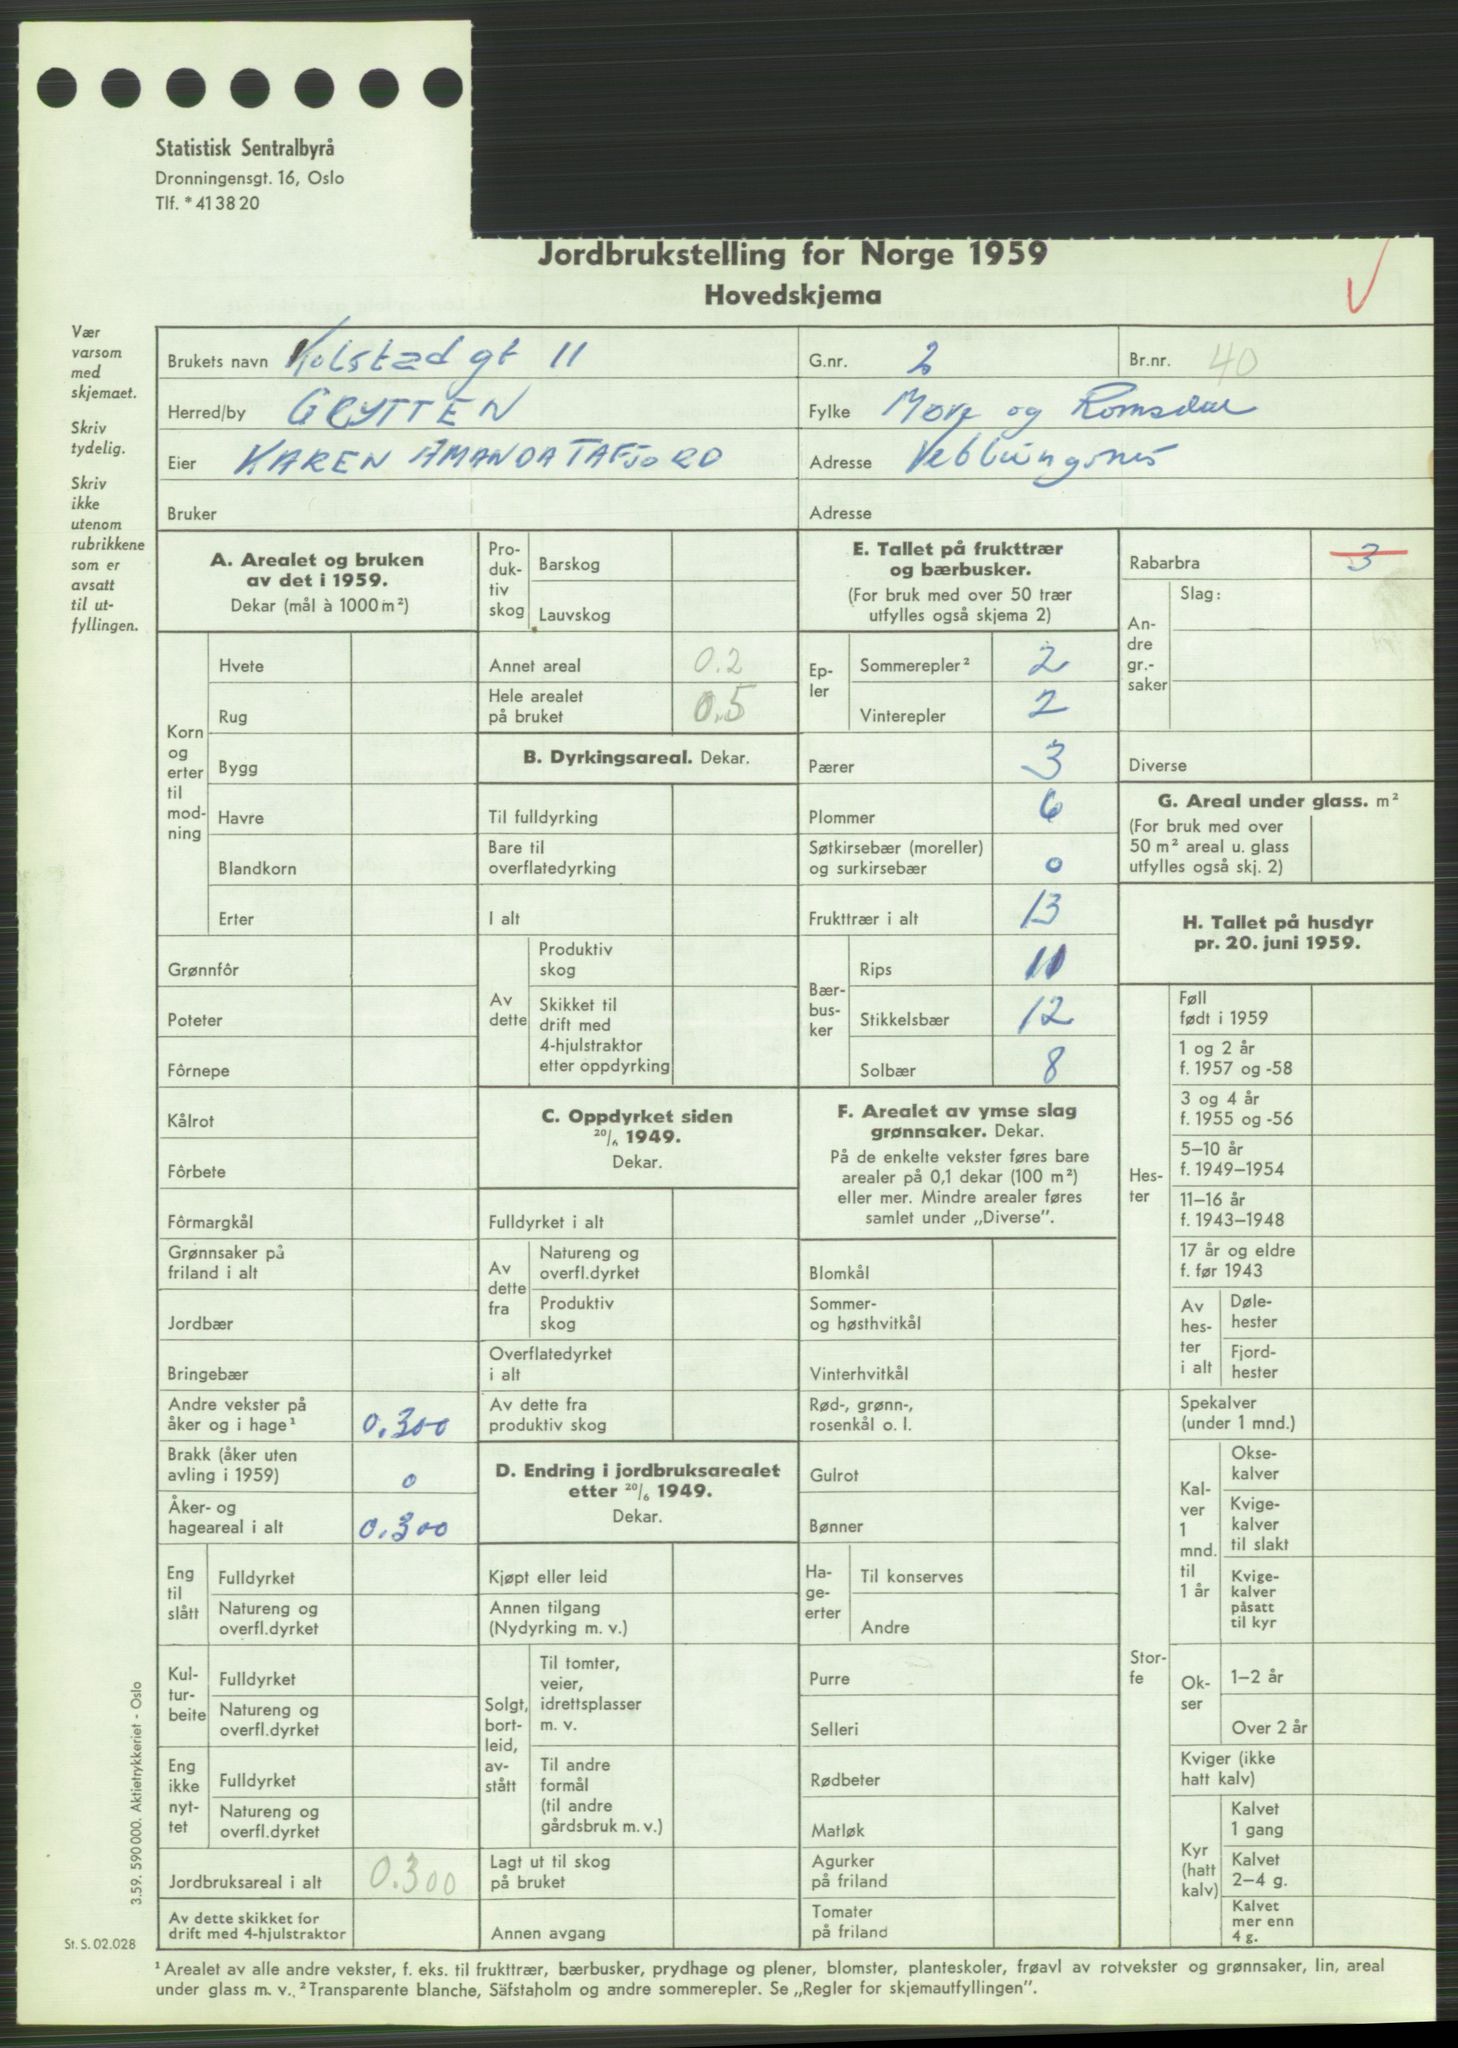 Statistisk Sentralbyrå
Dronningensgt. 16, Oslo
Tlf. * 41 38 20
Jordbrukstelling for Norge 1959
Hovedskjema
Vær
varsom
med
skjemaet.
Skriv
tydelig.
Skriv
ikke
utenom
rubrikkene
som er
avsatt
til ut-
fyllingen.
Brukets navn Kolstad gt 11 G.nr. 2 Br.nr. 40
Herred/by GRYTTEN Fylke Møre og Romsdal
Eier KAREN AMANDA TAFJORD Adresse Veblungsnes
Bruker Adresse
A. Arealet og bruken
av det i 1959.
Dekar (mål à 1000 m²)
Korn
og
erter
til
mod-
ning
Hvete
Rug
Bygg
Havre
Blandkorn
Erter
Grønnfôr
Poteter
Fôrnepe
Kålrot
Fôrbete
Fôrmargkål
Grønnsaker på
friland i alt
Jordbær
Bringebær
Andre vekster på
åker og i hage¹ 0.300
Brakk (åker uten
avling i 1959) 0
Åker- og
hageareal i alt 0.300
Eng
til
slått
Fulldyrket
Natureng og
overfl.dyrket
Kul-
tur-
beite
Fulldyrket
Natureng og
overfl.dyrket
Eng
ikke
nyt-
tet
Fulldyrket
Natureng og
overfl.dyrket
Jordbruksareal i alt 0.300
Av dette skikket for
drift med 4-hjulstraktor
Pro-
duk-
tiv
skog
Barskog
Lauvskog
Annet areal 0.2
Hele arealet
på bruket 0.5
B. Dyrkingsareal. Dekar.
Til fulldyrking
Bare til
overflatedyrking
I alt
Av
dette
Produktiv
skog
Skikket til
drift med
4-hjulstraktor
etter oppdyrking
C. Oppdyrket siden
20/6 1949.
Dekar.
Fulldyrket i alt
Av
dette
fra
Natureng og
overfl.dyrket
Produktiv
skog
Overflatedyrket
i alt
Av dette fra
produktiv skog
D. Endring i jordbruksarealet
etter 20/6 1949.
Dekar.
Kjøpt eller leid
Annen tilgang
(Nydyrking m. v.)
Solgt,
bort-
leid,
av-
stått
Til tomter,
veier,
idrettsplasser
m. v.
Til andre
formål
(til andre
gårdsbruk m. v.)
Lagt ut til skog
på bruket
Annen avgang
E. Tallet på frukttrær
og bærbusker.
(For bruk med over 50 trær
utfylles også skjema 2)
Ep-
ler
Sommerepler² 2
Vinterepler 2
Pærer 3
Plommer 6
Søtkirsebær (moreller)
og surkirsebær 0
Frukttrær i alt 13
Bær-
bus-
ker
Rips 11
Stikkelsbær 12
Solbær 8
F. Arealet av ymse slag
grønnsaker. Dekar.
På de enkelte vekster føres bare
arealer på 0,1 dekar (100 m²)
eller mer. Mindre arealer føres
samlet under „Diverse”.
Blomkål
Sommer-
og høsthvitkål
Vinterhvitkål
Rød-, grønn-,
rosenkål o. l.
Gulrot
Bønner
Ha-
ge-
erter
Til konserves
Andre
Purre
Selleri
Rødbeter
Matløk
Agurker
på friland
Tomater
på friland
Rabarbra 3
An-
dre
gr.-
saker
Slag:
Diverse
G. Areal under glass. m²
(For bruk med over
50 m² areal u. glass
utfylles også skj. 2)
H. Tallet på husdyr
pr. 20. juni 1959.
Hes-
ter
Føll
født i 1959
1 og 2 år
f. 1957 og -58
3 og 4 år
f. 1955 og -56
5–10 år
f. 1949–1954
11–16 år
f. 1943–1948
17 år og eldre
f. før 1943
Av
hes-
ter
i alt
Døle-
hester
Fjord-
hester
Stor-
fe
Spekalver
(under 1 mnd.)
Kal-
ver
1
mnd.
til
1 år
Okse-
kalver
Kvige-
kalver
til slakt
Kvige-
kalver
påsatt
til kyr
Ok-
ser
1–2 år
Over 2 år
Kviger (ikke
hatt kalv)
Kyr
(hatt
kalv)
Kalvet
1 gang
Kalvet
2–4 g.
Kalvet
mer enn
4 g.
3.59. 590 000. Aktietrykkeriet - Oslo
St. S. 02.028
¹ Arealet av alle andre vekster, f. eks. til frukttrær, bærbusker, prydhage og plener, blomster, planteskoler, frøavl av rotvekster og grønnsaker, lin, areal
under glass m. v. ² Transparente blanche, Säfstaholm og andre sommerepler. Se „Regler for skjemautfyllingen”.